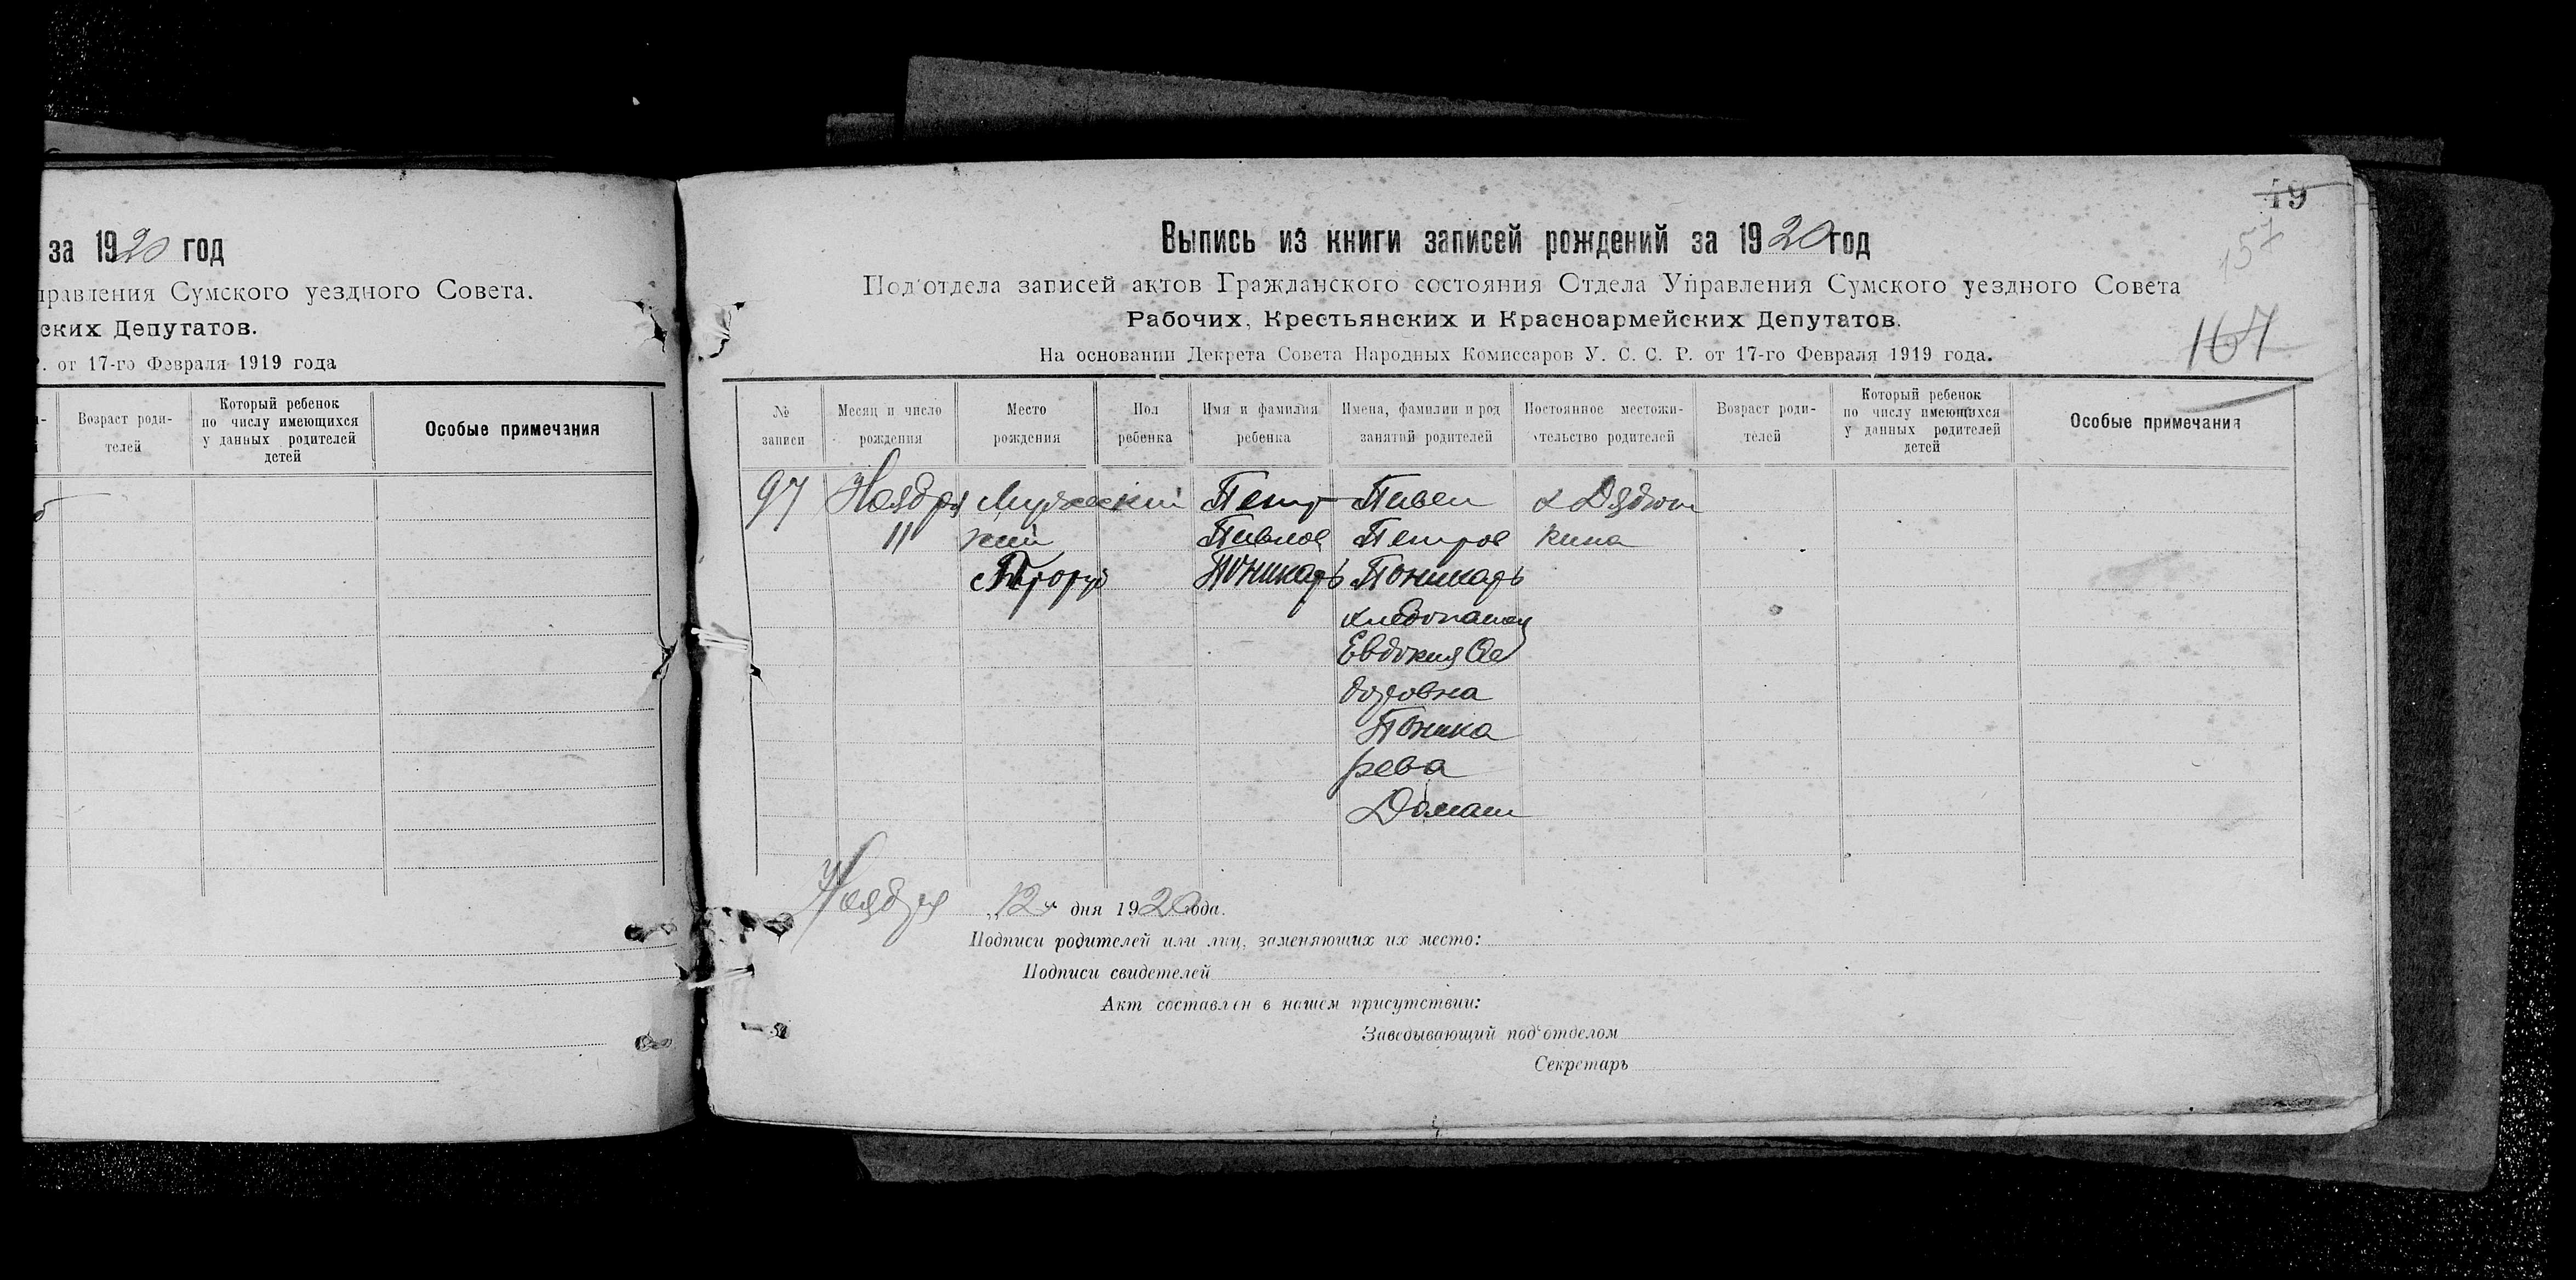 за 1920 год
правления Сумского уездного Совета.
ских Депутатов.
Р. от 17-го Февраля 1919 года
Возраст роди-
телей
Который ребенок
по числу имеющихся
у данных родителей
детей
Особые примечания
49
157
167
Выпись из книги записей рождений за 1920 год
Под'отдела записей актов Гражданского состояния Отдела Управления Сумского уездного Совета
Рабочих, Крестьянских и Красноармейских Депутатов.
На основании Декрета Совета Народных Комиссаров У. С. С. Р. от 17-го Февраля 1919 года.
№
записи
Месяц и число
рождения
Место
рождения
Пол
ребенка
Имя и фамилия
ребенка
Имена, фамилии и род
занятий родителей
Постоянное местожи-
тельство родителей
Возраст роди-
телей
Который ребенок
по числу имеющихся
у данных родителей
детей
Особые примечания
97
Ноября
11
Петр
Павлов
Поникарь
Павел
Петров
Поникарь
хлебопашец
Евдокия Ѳе
доровна
Поника
рева
Домаш
х Дядюш
кина
Ноября 12 дня 1920 года.
Подписи родителей или лиц, заменяющих их место:
Подписи свидетелей
Акт составлен в нашем присутствии:
Заведывающий под'отделом
Секретарь